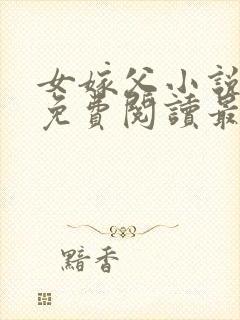 女嫁父小說
免費閱讀最
黯香